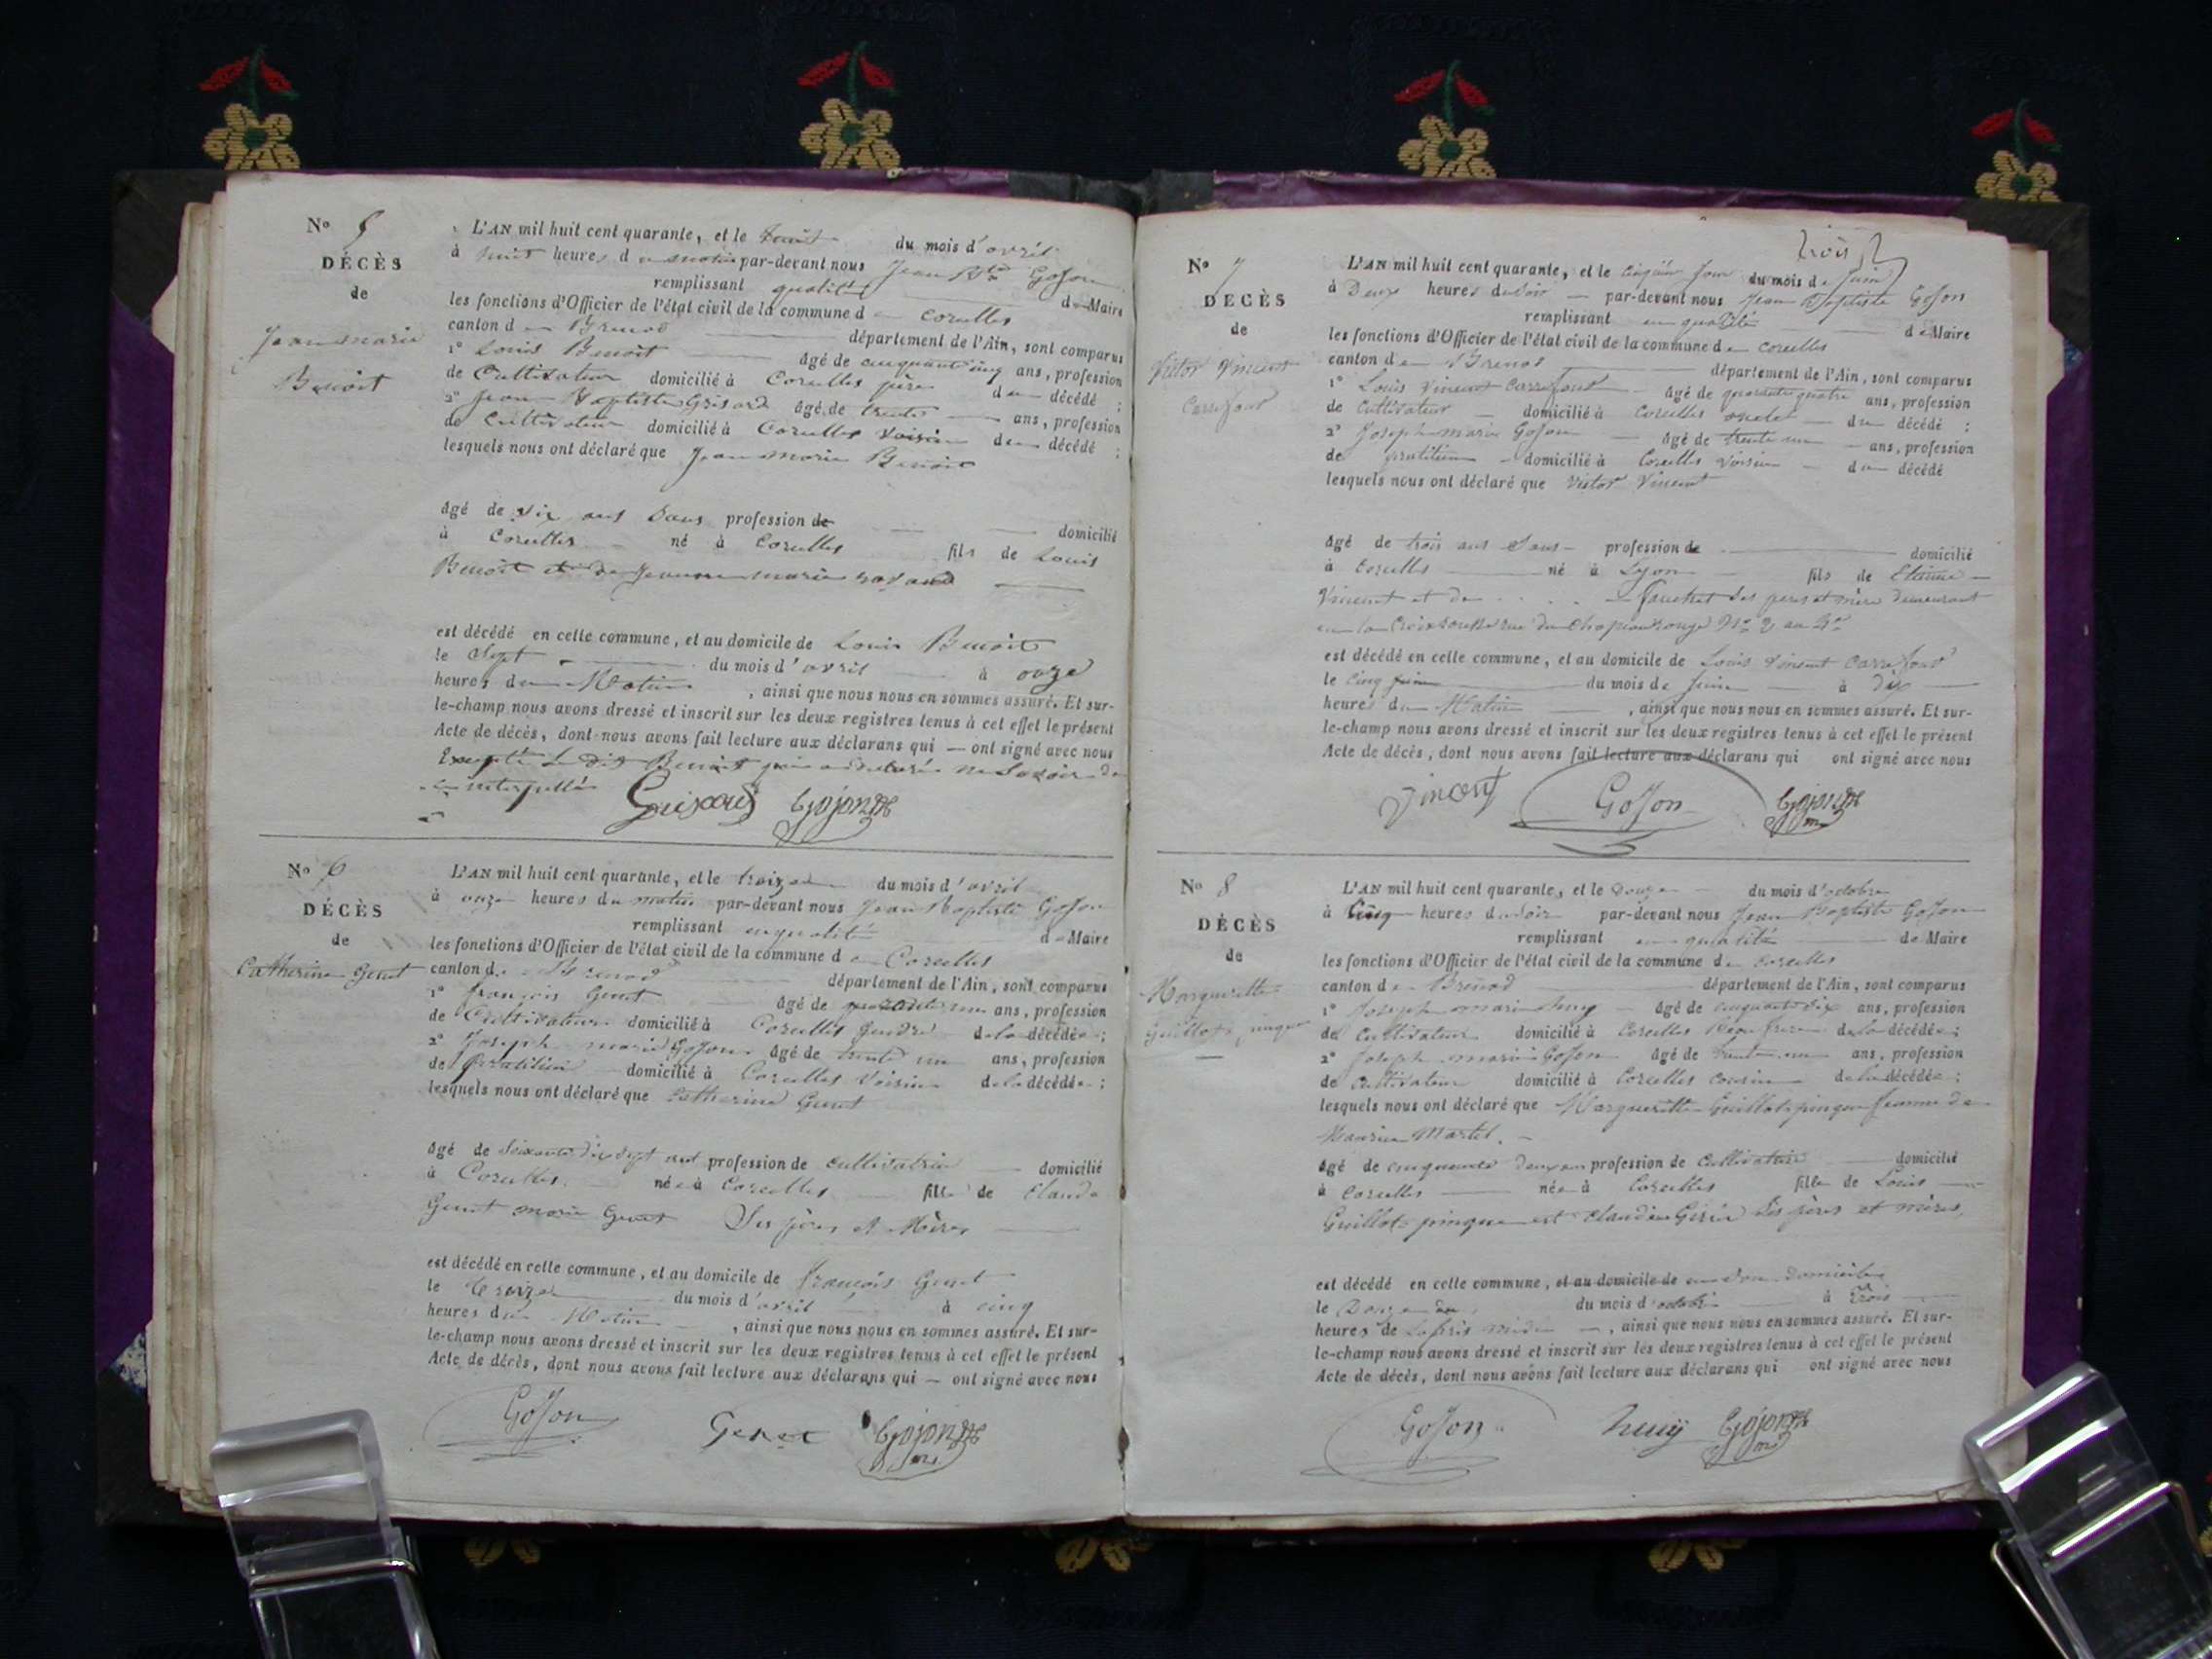 N° 5
DÉCÈS
de
Jean marie
Benoit
L'AN mil huit cent quarante, et le huit du mois d'avril
à huit heures du matin par-devant nous Jean Bte Gojon
remplissant qualité de Maire
les fonctions d'Officier de l'état civil de la commune de Corcelles
canton de Brenod département de l'Ain, sont comparus
1° Louis Benoit âgé de cinquante cinq ans, profession
de Cultivateur domicilié à Corcelles père du décédé ;
2° Jean Baptiste Grisard âgé de trente ans, profession
de Cultivateur domicilié à Corcelles voisin du décédé ;
lesquels nous ont déclaré que Jean marie Benoit
âgé de six ans Sans profession de domicilié
à Corcelles né à Corcelles fils de Louis
Benoit et de Jeanne marie
est décédé en cette commune, et au domicile de Louis Benoit
le Sept du mois d'avril à onze
heures du Matin, ainsi que nous nous en sommes assuré. Et sur-
le-champ nous avons dressé et inscrit sur les deux registres tenus à cet effet le présent
Acte de décès, dont nous avons fait lecture aux déclarans qui — ont signé avec nous
Excepté le dit Benoit qui a déclaré ne Savoir de
ce interpellé
Grisard Gojon
N° 6
DÉCÈS
de
Catherine Genet
L'AN mil huit cent quarante, et le treize du mois d'avril
à onze heures du matin par-devant nous Jean Baptiste Gojon
remplissant en qualité de Maire
les fonctions d'Officier de l'état civil de la commune de Corcelles
canton de Brenod département de l'Ain, sont comparus
1° françois Genet âgé de quarante un ans, profession
de Cultivateur domicilié à Corcelles gendre de la décédée ;
2° Joseph marie Gojon âgé de trente un ans, profession
de praticien domicilié à Corcelles voisin de la décédée ;
lesquels nous ont déclaré que Catherine Genet
âgé de soixante dix sept ans profession de cultivatrice domicilié
à Corcelles née à Corcelles fille de Claude
Genet marie Genet Ses pères et Mères
est décédé en cette commune, et au domicile de françois Genet
le treize du mois d'avril à cinq
heures du Matin, ainsi que nous nous en sommes assuré. Et sur-
le-champ nous avons dressé et inscrit sur les deux registres tenus à cet effet le présent
Acte de décès, dont nous avons fait lecture aux déclarans qui — ont signé avec nous
Gojon Genet Gojon
trois
N° 7
DÉCÈS
de
Victor Vincent
Carrefour
L'AN mil huit cent quarante, et le jour du mois de Juin
à Deux heures du soir par-devant nous Jean Baptiste Gojon
remplissant en qualité de Maire
les fonctions d'Officier de l'état civil de la commune de Corcelles
canton de Brenod département de l'Ain, sont comparus
1° Louis Vincent Carrefour âgé de quarante quatre ans, profession
de Cultivateur domicilié à Corcelles oncle du décédé ;
2° Joseph marie Gojon âgé de trente un ans, profession
de praticien domicilié à Corcelles voisin du décédé
lesquels nous ont déclaré que Victor Vincent
âgé de trois ans Sans profession de domicilié
à Corcelles né à Lyon fils de Etienne
Vincent et de . . . . fouchet Ses peres et mère demeurant
en la Croix rousse rue du Chapeau rouge N° 2 au
est décédé en cette commune, et au domicile de Louis Vincent Carrefour
le Cinq Juin du mois de Juin à dix
heures du Matin, ainsi que nous nous en sommes assuré. Et sur-
le-champ nous avons dressé et inscrit sur les deux registres tenus à cet effet le présent
Acte de décès, dont nous avons fait lecture aux déclarans qui ont signé avec nous
Vincent Gojon Gojon
N° 8
DÉCÈS
de
Margueritte
Guillot pingue
L'AN mil huit cent quarante, et le Douze du mois d'octobre
à Cinq heures du soir par-devant nous Jean Baptiste Gojon
remplissant en qualité de Maire
les fonctions d'Officier de l'état civil de la commune de Corcelles
canton de Brenod département de l'Ain, sont comparus
1° Joseph marie huny âgé de cinquante dix ans, profession
de Cultivateur domicilié à Corcelles Beau frere de la décédée ;
2° Joseph marie Gojon âgé de trente un ans, profession
de Cultivateur domicilié à Corcelles cousin de la décédée ;
lesquels nous ont déclaré que Margueritte Guillot pingue femme de
Maurice Martel.
âgé de cinquante deux ans profession de Cultivatrice domicilié
à Corcelles née à Corcelles fille de Louis
Guillot pingue et Claudine Ses pères et mères,
est décédé en cette commune, et au domicile de en son domicile
le Douze du mois d'octobre à trois
heures de Lapres midi, ainsi que nous nous en sommes assuré. Et sur-
le-champ nous avons dressé et inscrit sur les deux registres tenus à cet effet le présent
Acte de décès, dont nous avons fait lecture aux déclarans qui ont signé avec nous
Gojon huny Gojon